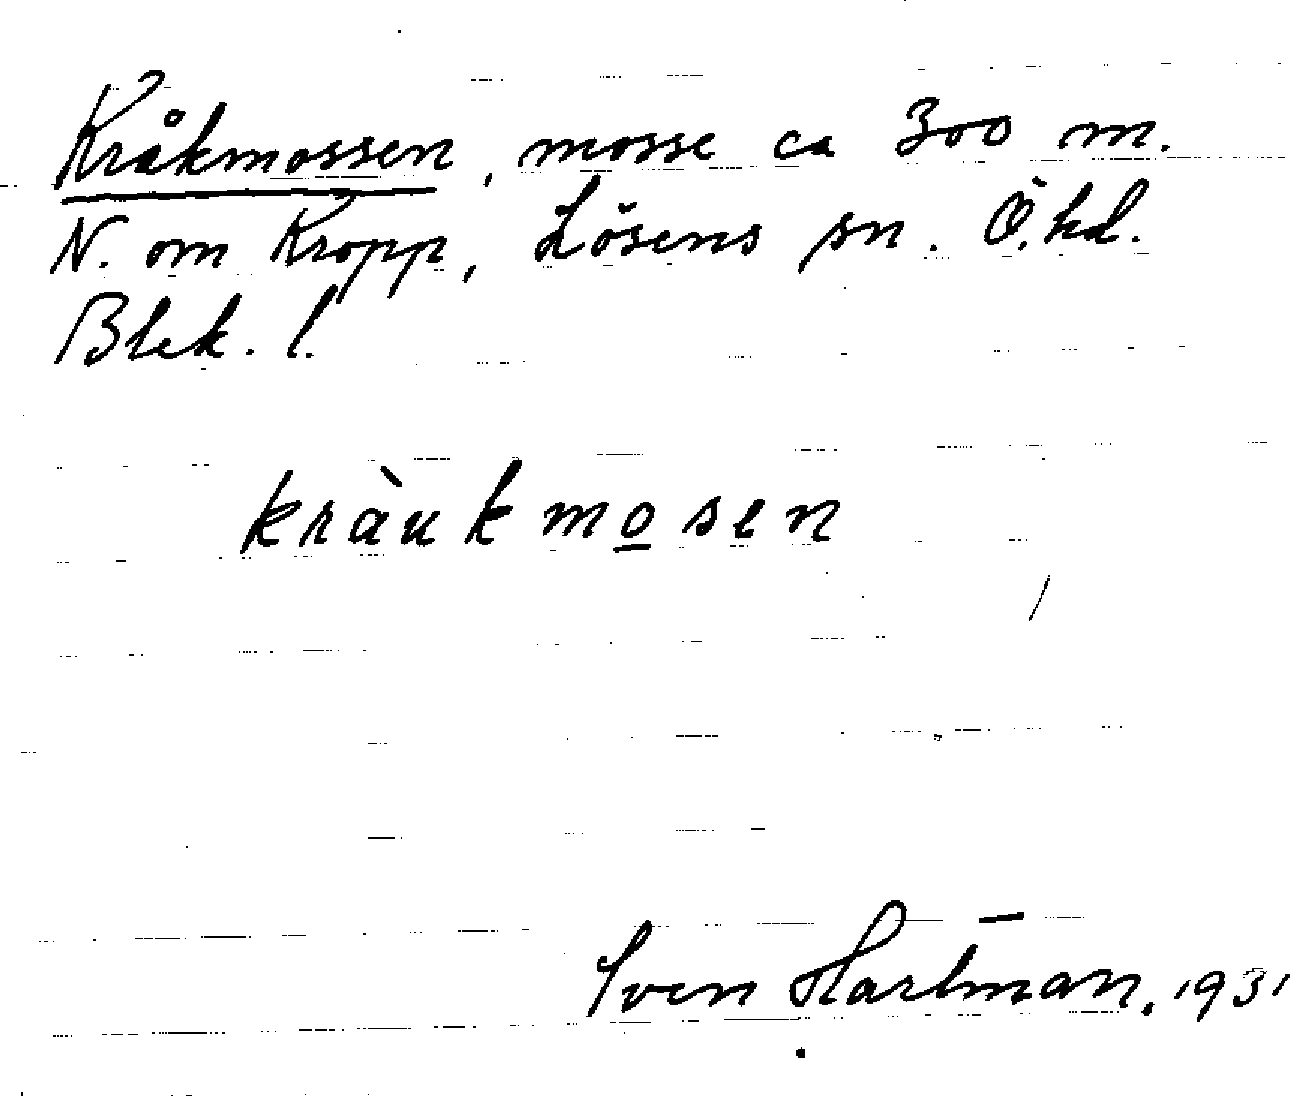 Kråkmossen, mosse ca 300 m.
N. om Kropp, Lösens sn. Ö. hd.
Blek. l.
kràukmosen
Sven Hartman. 1931